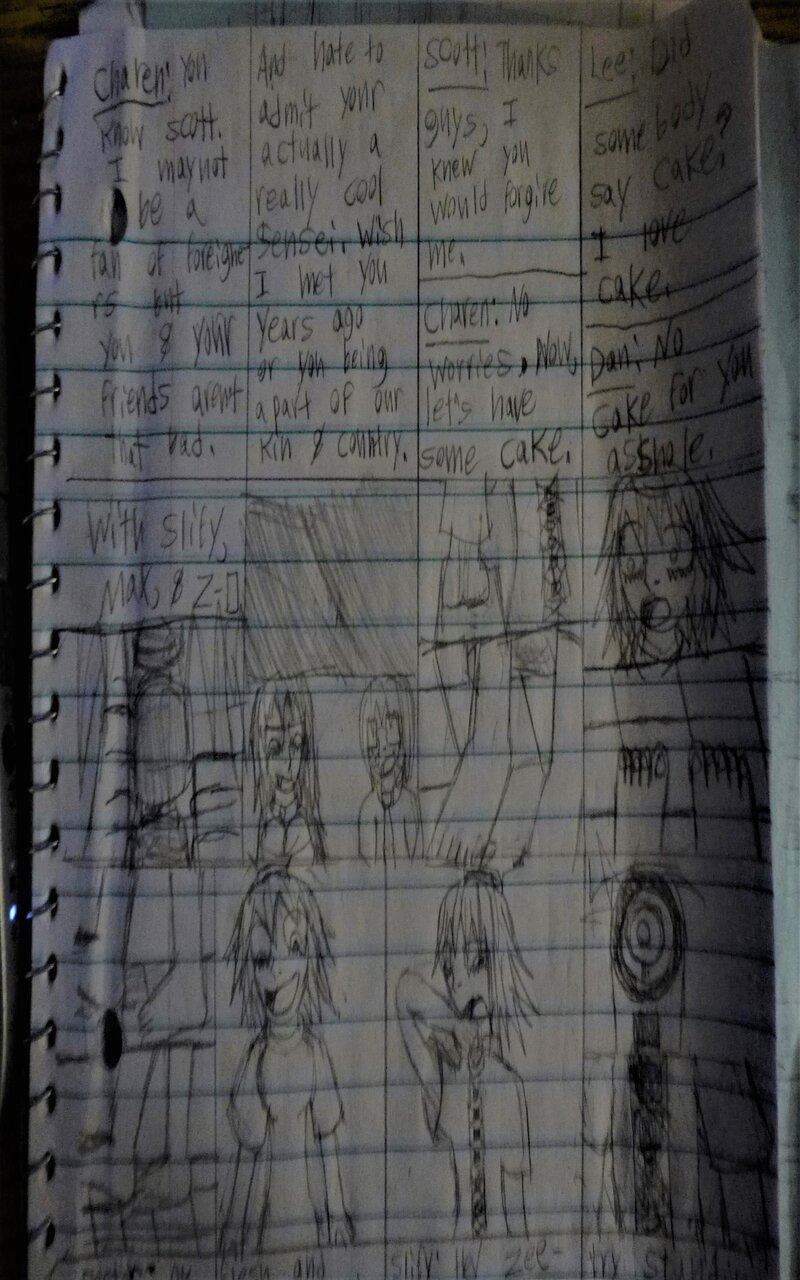 Charen: You
know scott.
I may not
be a
fan of foreigne
rs but
you & your
friends arent
that bad.
And hate to
admit your
actually a
really cool
Sensei. Wish
I met you
years ago
or you being
apart of our
kin & country.
Scott: Thanks
guys, I
knew you
would forgive
me.
Charen: No
worries. Now,
let's have
some cake.
Lee: Did
somebody
say cake?
I love
cake.
Dan: No
cake for you
asshole.
With slity,
Max, &
and
slity: My zee-
try